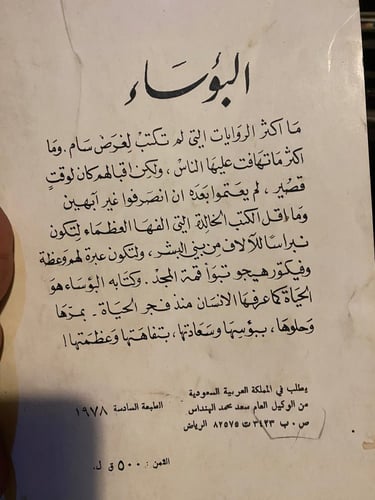 البؤساء
ما اكثر الروايات التي لم تكتب لغرض سام. وما
اكثر ما تهافت عليها الناس، ولكن اقبالهم كان لوقتٍ
قصير، لم يعتموا بعده ان انصرفوا غير آبهين
وما اقل الكتب الخالدة التي الفها العظماء لتكون
نبراسا للآلاف من بني البشر، ولتكون عبرة لهم وعظة
وفيكتور هيجو تبوأ قمة المجد. وكتابه البؤساء هو
الحياة كما عرفها الانسان منذ فجر الحياة - بمرّها
وحلوها، ببؤسها وسعادتها، بتفاهتها وعظمتها!
يطلب في المملكة العربية السعودية
من الوكيل العام سعد محمد الهنداس
ص.ب ٣٤٢٣ ت ٨٢٥٧٥ الرياض
الطبعة السادسة ١٩٧٨
الثمن: ٥٠٠ ق.ل.